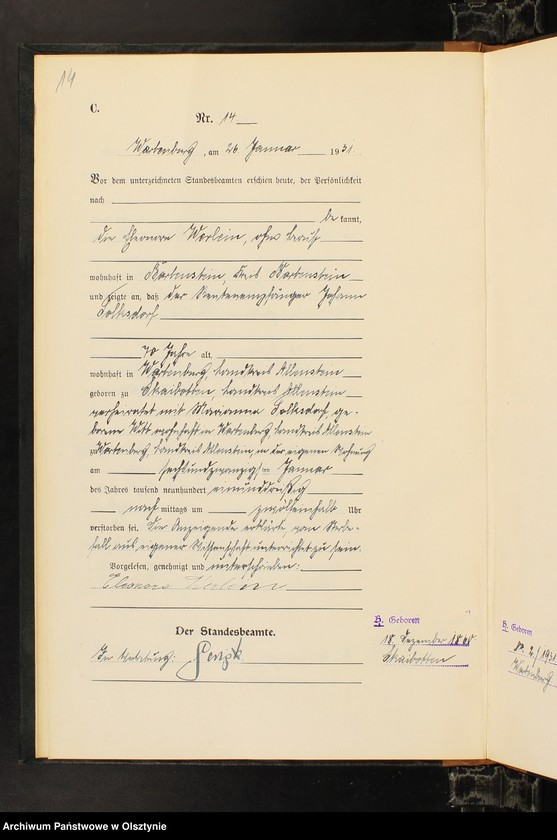 14
C.
Nr. 14
Wartenberg, am 26 Januar 1931
Vor dem unterzeichneten Standesbeamten erschien heute, der Persönlichkeit
nach
be kannt,
die Eleonore Worlein, ohne Beruf
wohnhaft in Bartenstein, Kreis Bartenstein
und zeigte an, daß der Rentenempfänger Johann
70 Jahre alt,
wohnhaft in Wartenberg, Landkreis Allenstein
geboren zu Skaibotten, Landkreis Allenstein
verheiratet mit Marianna, ge-
borene, wohnhaft in Wartenberg, Landkreis Allenstein
zu Wartenberg, Landkreis Allenstein, in der eigenen Wohnung
am sechsundzwanzigsten Januar
des Jahres tausend neunhundert einunddreißig
nach mittags um zwölfeinhalb Uhr
verstorben sei. Die Anzeigende erklärte, vom Sterbe-
fall aus eigener Wissenschaft unterrichtet zu sein.
Vorgelesen, genehmigt und unterschrieben:
Eleonore
Der Standesbeamte.
In Vertretung:
H. Geboren
18. Dezember 1860
Skaibotten
H. Geboren
Nr. 2/1931
Wartenberg
Archiwum Państwowe w Olsztynie